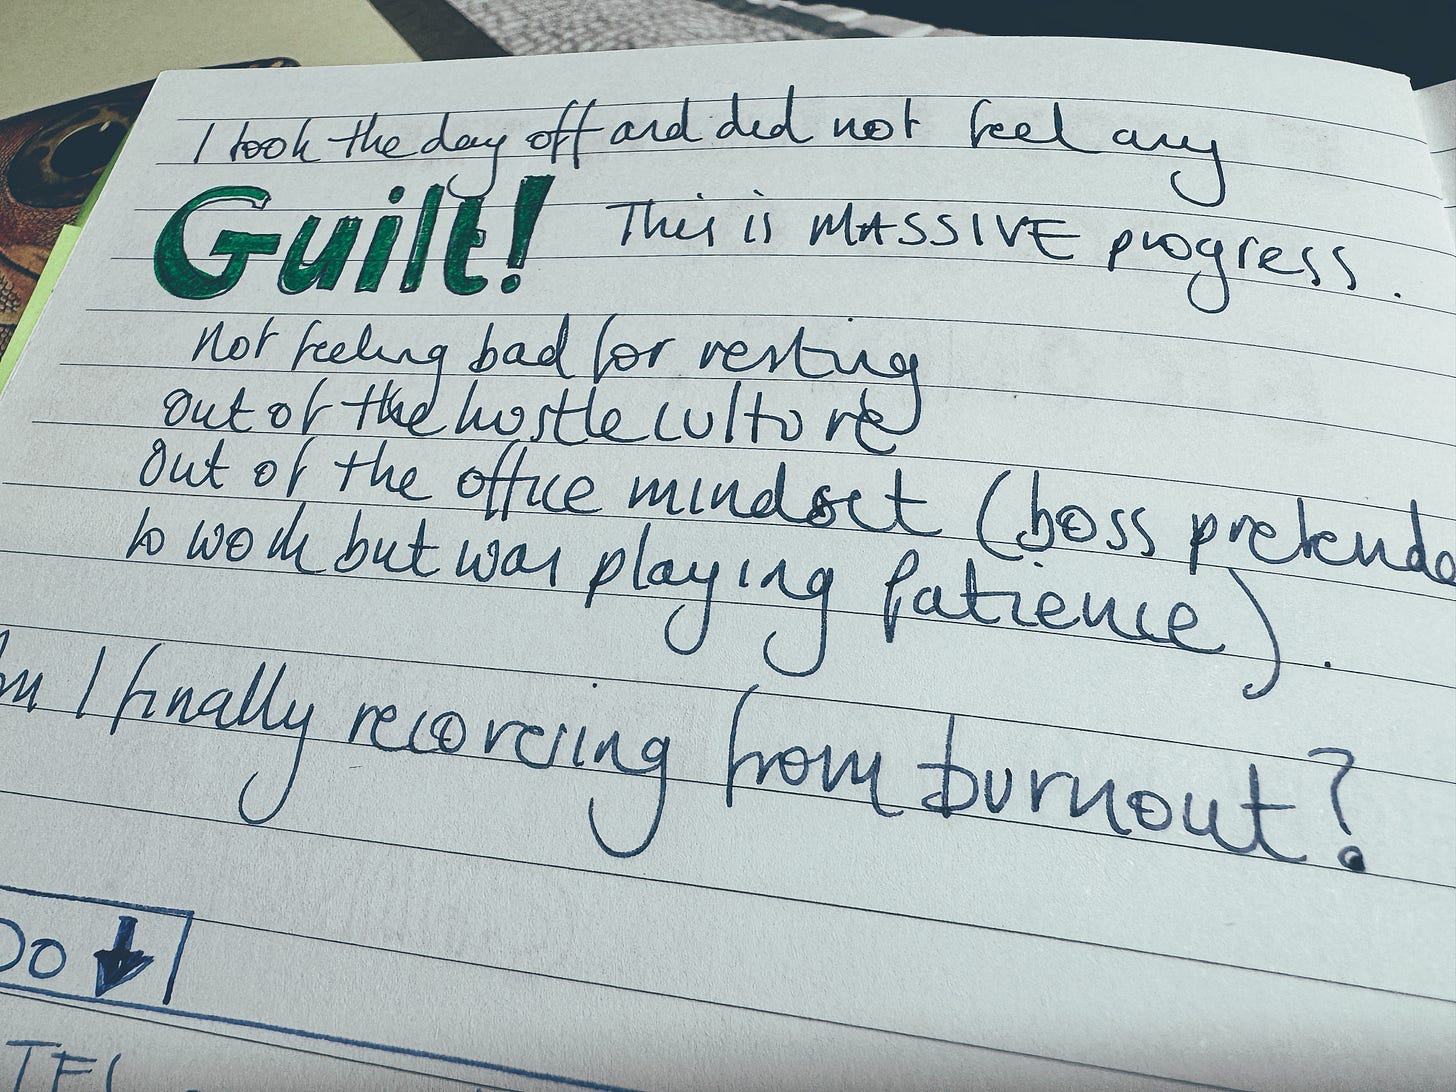 I took the day off and did not feel any
Guilt! This is MASSIVE progress.
Not feeling bad for resting
out of the hustle culture
Out of the office mindset (boss pretende
to work but was playing patience).
Am I finally recovering from burnout?
Do ↓